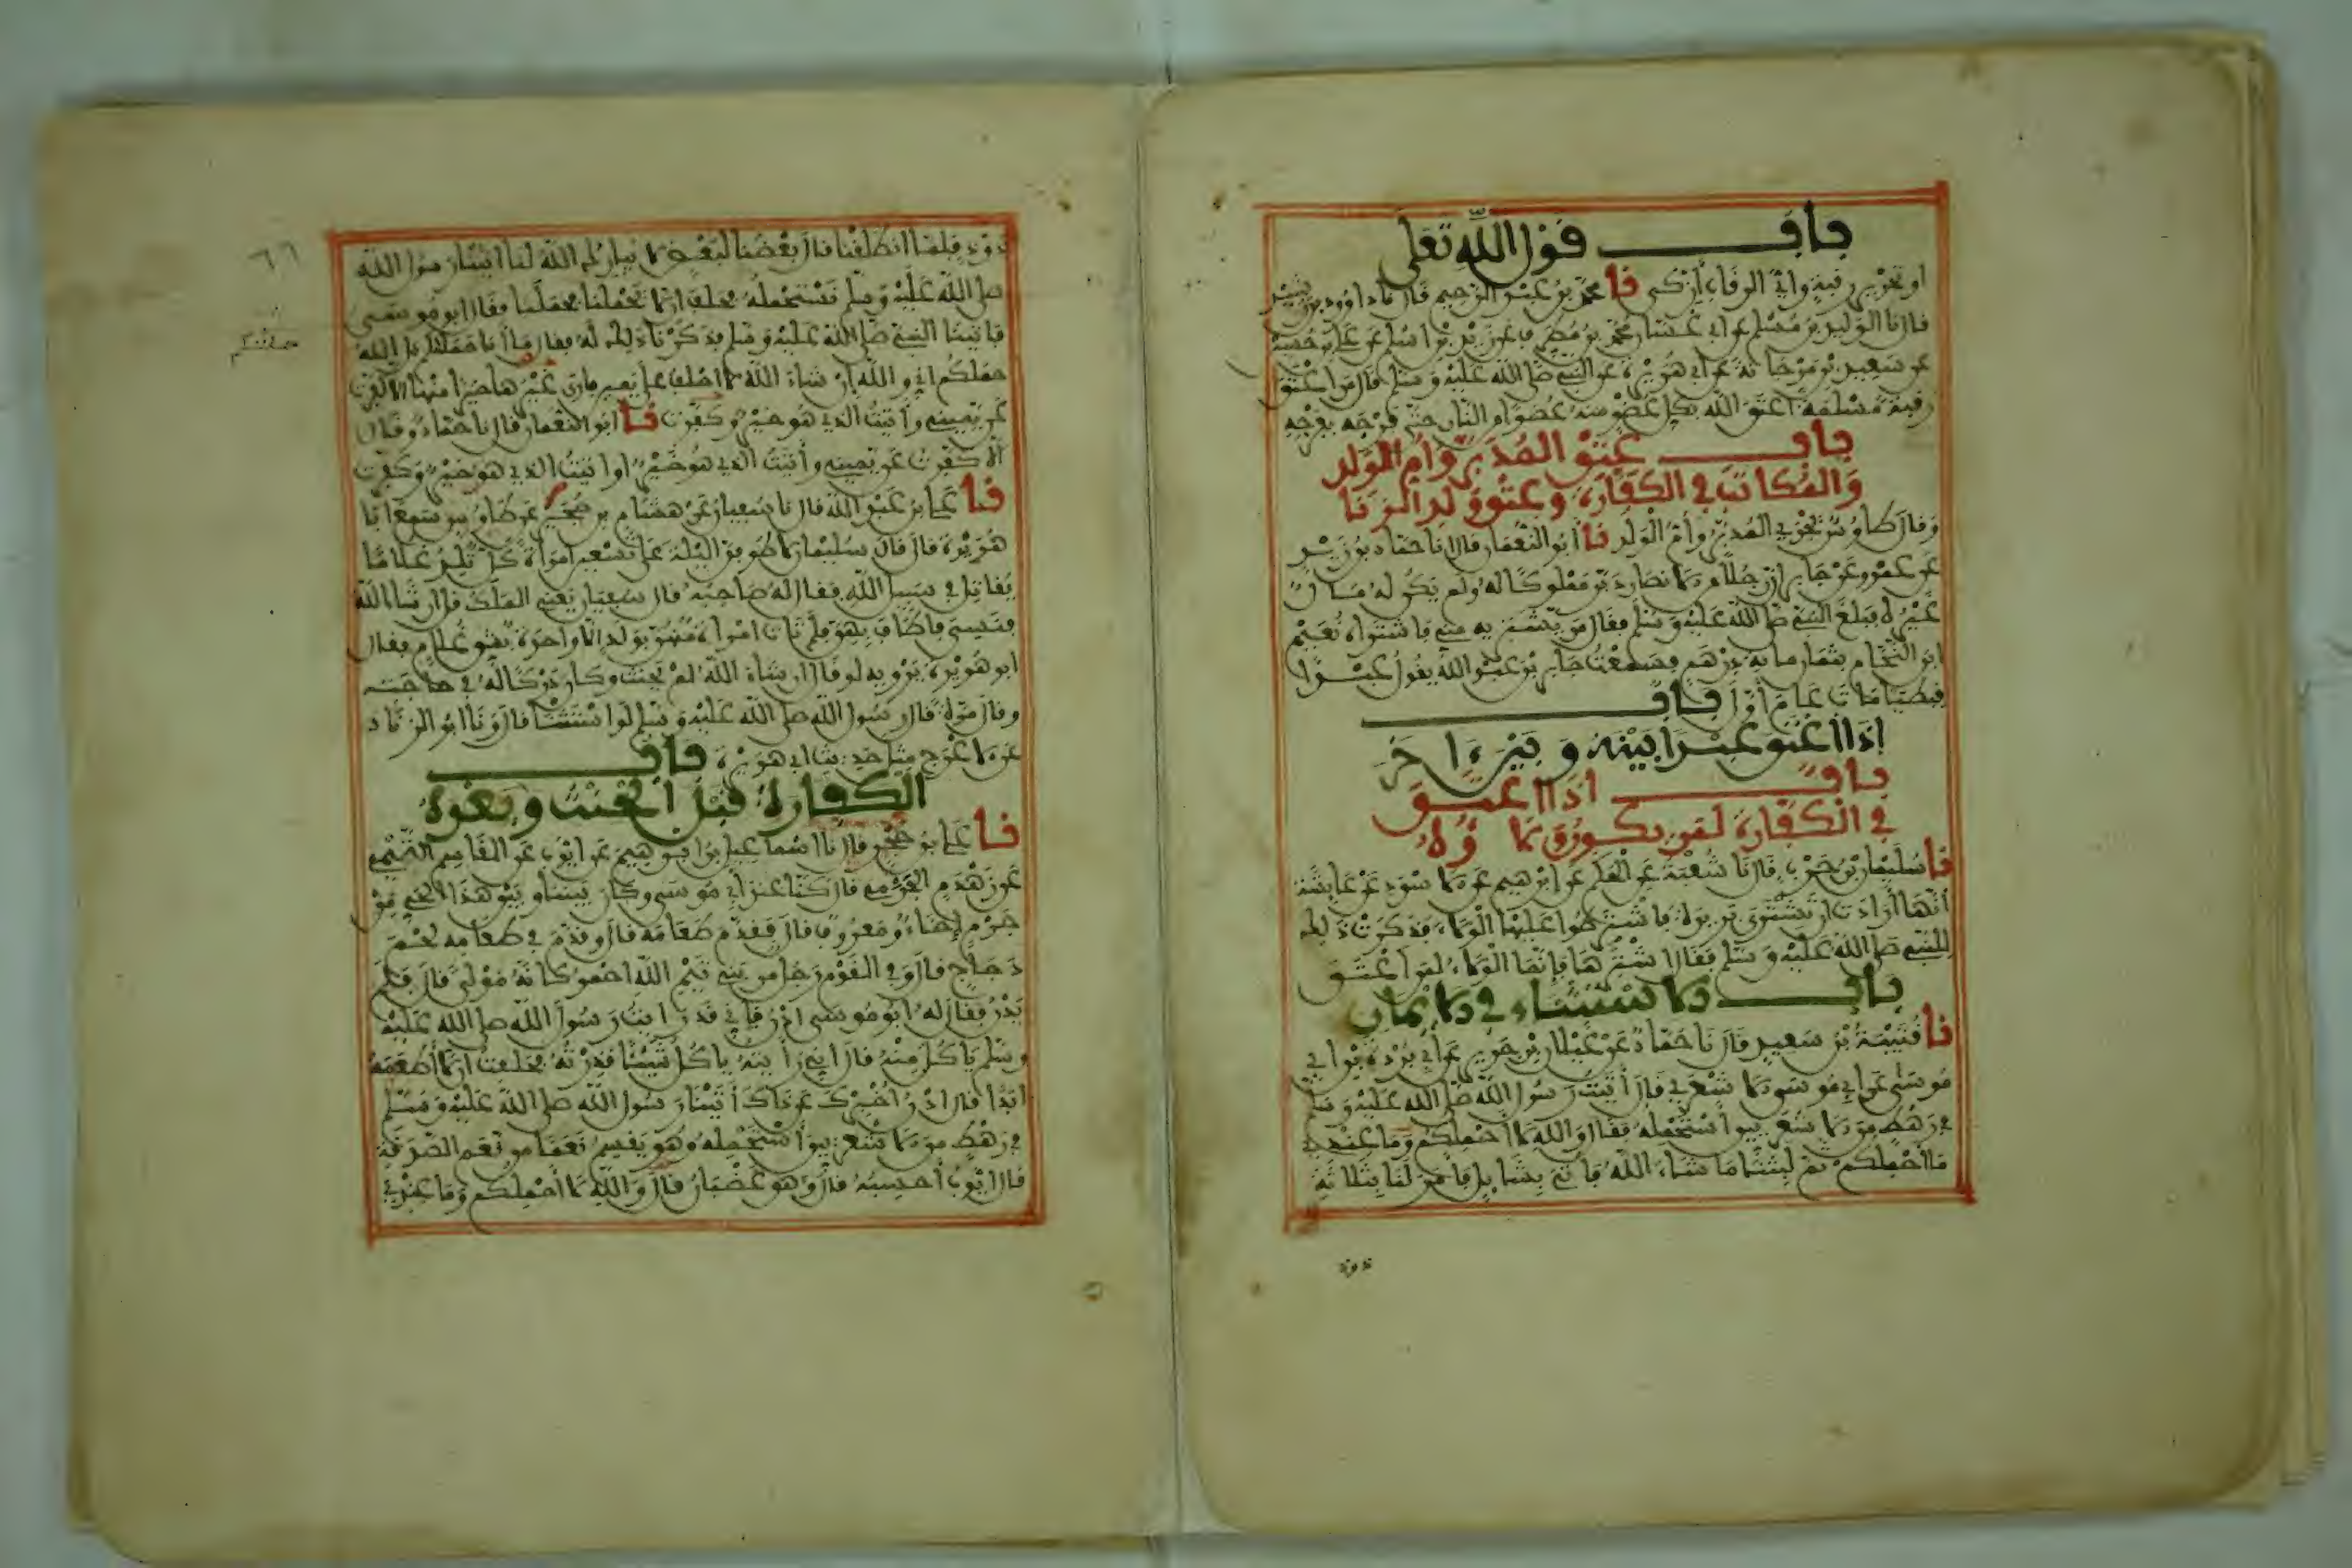 باب قول الله تعلى
او تحرير رقبة وأي الرقاب أزكى نا محمد بن عبد الرحيم قال نا داوود بن رشيد
قال نا الوليد بن مسلم عن ابي غسان محمد بن مطرف عن زيد بن اسلم عن علي بن حسين
عن سعيد بن مرجانة عن ابي هريرة عن النبي صلى الله عليه وسلم قال من اعتق
رقبة مسلمة اعتق الله بكل عضو منه عضوا من النار حتى فرجه بفرجه
باب عتق المدبر وام الولد
والمكاتب في الكفارة وعتق ولد الزنا
وقال طاوس يجزي المدبر وأم الولد نا أبو النعمان قال انا حماد بن زيد
عن عمرو عن جابر ان رجلا من الانصار دبر مملوكا له ولم يكن له مال
غيره فبلغ النبي صلى الله عليه وسلم فقال من يشتريه مني فاشتراه نعيم
ابن النحام بثمان ماية درهم فسمعت جابر بن عبد الله يقول عبدا
قبطيا مات عام أول باب
إذا اعتق عبدا بينه وبين ءاخر
باب اذا اعتق
في الكفارة لمن يكون ولاؤه
نا سليمان بن حرب قال نا شعبة عن الحكم عن ابرهيم عن الاسود عن عايشة
أنها أرادت ان تشتري بريرة فاشترطوا عليها الولاء فذكرت ذلك
للنبي صلى الله عليه وسلم فقال اشتريها فإنما الولاء لمن اعتق
باب الاستثناء في الايمان
نا قتيبة بن سعيد قال نا حماد عن غيلان بن جرير عن أبي بردة بن ابي
موسى عن ابي موسى الاشعري قال أتيت رسول الله صلى الله عليه وسلم
في رهط من الاشعريين أستحمله فقال والله لا أحملكم وما عندي
ما احملكم ثم لبثنا ما شاء الله فاتي بشايل فامر لنا بثلاثة
ذود
ذود فلما انطلقنا قال بعضنا لبعض لا يبارك الله لنا اتينا رسول الله
صلى الله عليه وسلم نستحمله فحلف ان لا يحملنا فحملنا فقال ابو موسى
فاتينا النبي صلى الله عليه وسلم فذكرنا ذلك له فقال ما أنا حملتكم بل الله
حملكم اني والله ان شاء الله لا احلف على يمين فارى غيرها خيرا منها الا كفرت
عن يميني وأتيت الذي هو خير وكفرت نا ابو النعمان قال نا حماد وقال
الا كفرت عن يميني وأتيت الذي هو خير او اتيت الذي هو خير وكفرت
نا علي بن عبد الله قال نا سفيان عن هشام بن حجير عن طاوس سمع ابا
هريرة قال قال سليمان لاطوفن الليلة على تسعين امرأة كل تلد غلاما
يقاتل في سبيل الله فقال له صاحبه قال سفيان يعني الملك قل ان شاء الله
فنسي فاطاف بهن فلم تات امرأة منهن بولد الا واحدة بشق غلام فقال
ابو هريرة يرويه لو قال ان شاء الله لم يحنث وكان دركا له في حاجته
وقال مرة قال رسول الله صلى الله عليه وسلم لو استثنى قال ونا ابو الزناد
عن الاعرج مثل حديث ابي هريرة باب
الكفارة قبل الحنث وبعده
نا علي بن حجر قال نا اسماعيل بن ابرهيم عن ايوب عن القاسم التميمي
عن زهدم الجرمي قال كنا عند أبي موسى وكان بيننا وبين هذا الحي من
جرم إخاء ومعروف قال فقدم طعامه قال وقدم في طعامه لحم
دجاج قال وفي القوم رجل من بني تيم الله احمر كانه مولى قال فلم
يدن فقال له ابو موسى ادن فاني قد رايت رسول الله صلى الله عليه
وسلم ياكل منه قال اني رأيته ياكل شيئا قذرته فحلفت ان لا أطعمه
ابدا قال ادن أخبرك عن ذلك أتينا رسول الله صلى الله عليه وسلم
في رهط من الاشعريين أستحمله وهو يقسم نعما من نعم الصدقة
قال ايوب أحسبه قال وهو غضبان قال والله لا أحملكم وما عندي